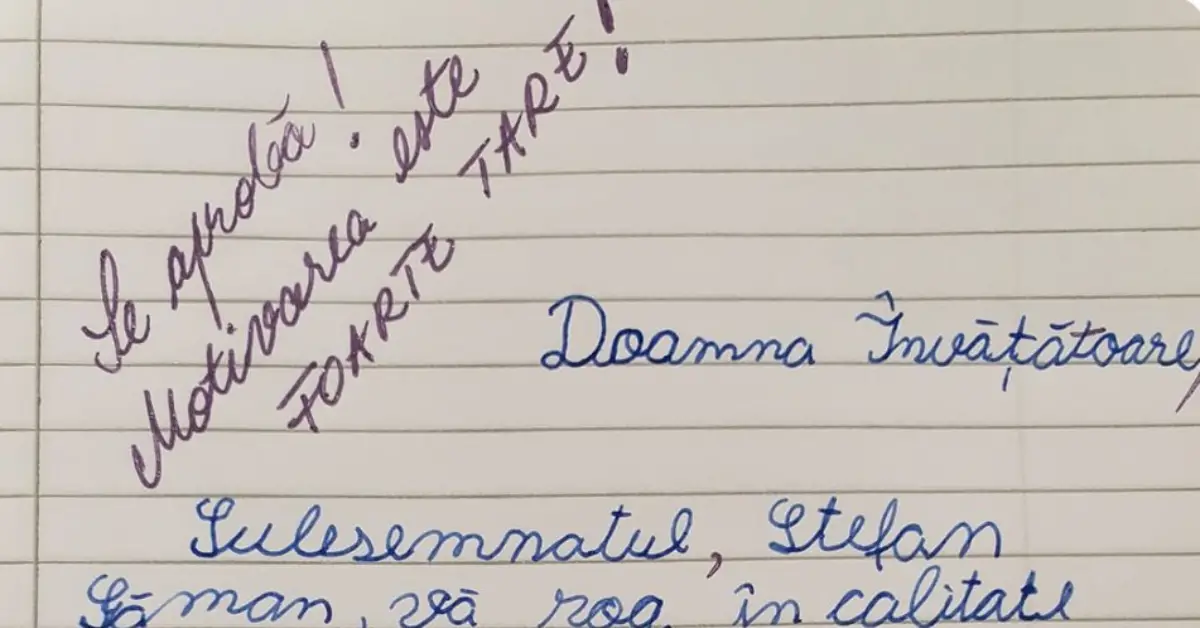 Se aprobă!
Motivarea este
FOARTE TARE!
Doamna Învățătoare,
Sulesemnatul, Ștefan
Săman, vă rog, în calitate